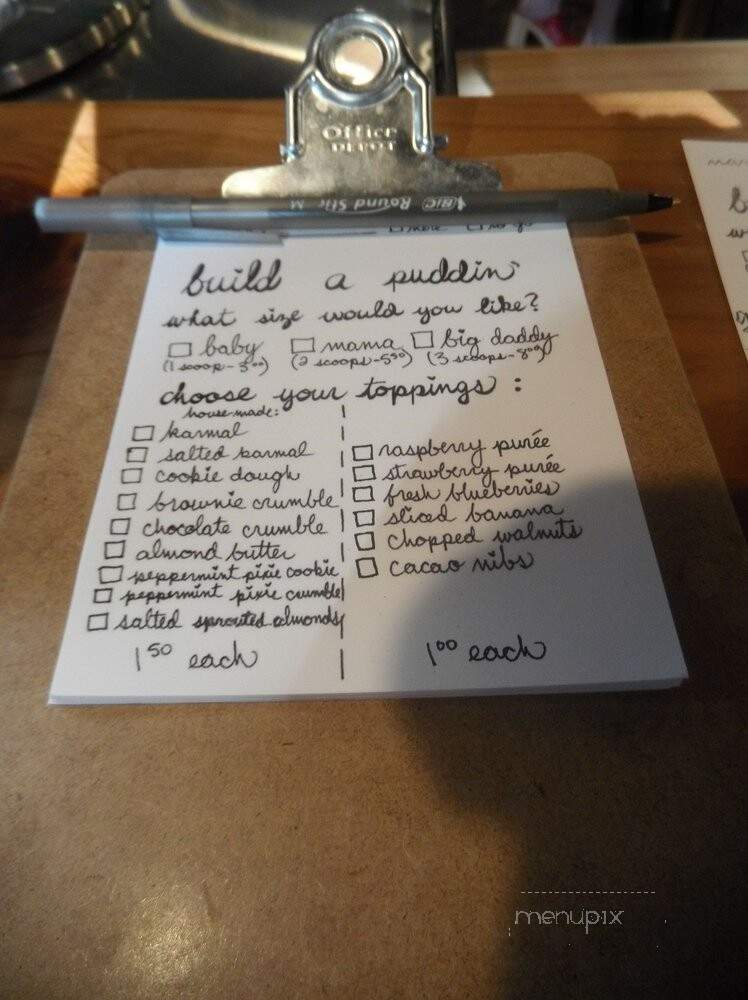 Office
DEPOT
BIC Round Stic M
build a puddin'
what size would you like?
☐ baby ☐ mama ☐ big daddy
(1 scoop-3⁰⁰) (2 scoops-5⁵⁰) (3 scoops-8⁰⁰)
choose your toppings :
house made:
☐ karmal
☐ salted karmal
☐ cookie dough
☐ brownie crumble
☐ chocolate crumble
☐ almond butter
☐ peppermint pixie cookie
☐ peppermint pixie crumble
☐ salted sprouted almonds
1⁵⁰ each
☐ raspberry purée
☐ strawberry purée
☐ fresh blueberries
☐ sliced banana
☐ chopped walnuts
☐ cacao nibs
1⁰⁰ each
menupix